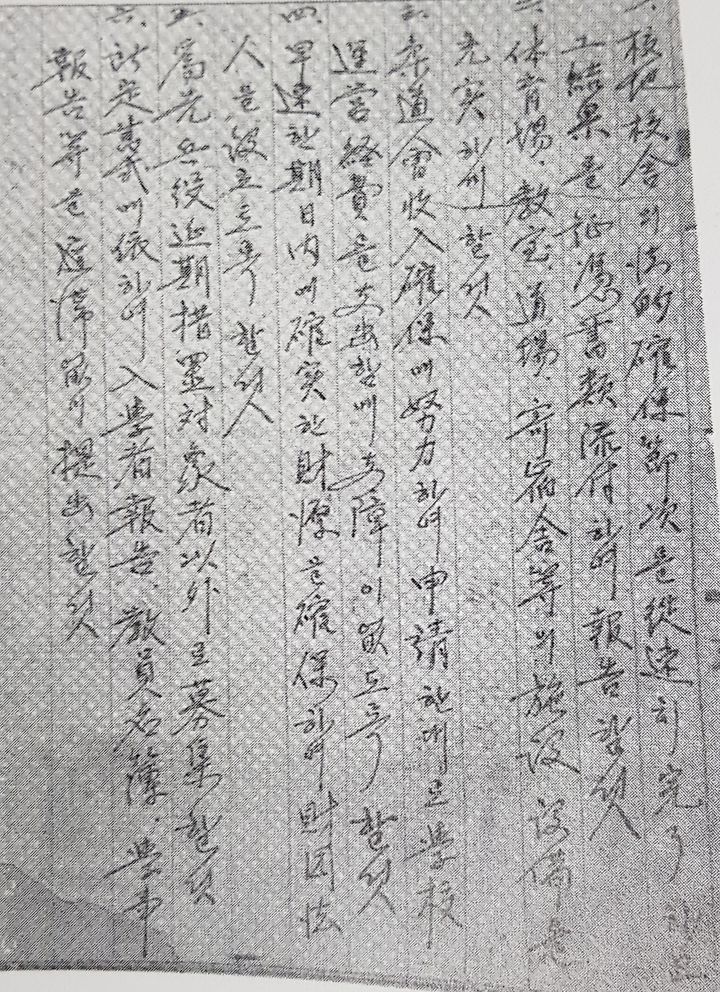 一. 校地校舍의 法的確保節次를 從速히 完了하고
그 結果를 証憑書類添付하여 報告할 것
二. 体育場, 敎室, 道場, 寄宿舍等의 施設 設備를
充實히 할 것
三. 柔道會收入確保에 努力하여 申請한대로 學校
運營経費를 支出함에 支障이 없도록 할 것
四. 早速한 期日內에 確實한 財源을 確保하여 財団法
人을 設立토록 할 것
五. 爲先 兵役延期措置対象者以外로 募集할 것
六. 所定書式에 依하여 入學者報告, 敎員名簿, 學事
報告等을 遲滯없이 提出할 것